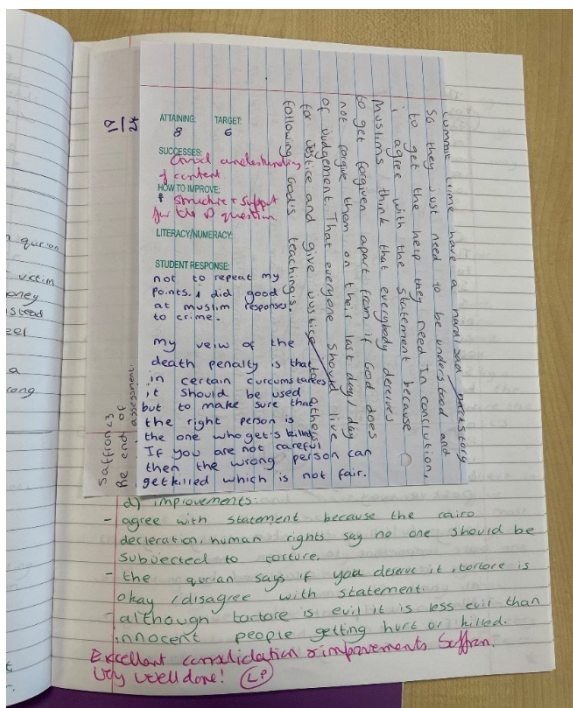 ATTAINING: TARGET:
8 6
SUCCESSES:
Good understanding
of content
HOW TO IMPROVE:
* Structure + support
for the D question
LITERACY/NUMERACY:
STUDENT RESPONSE:
not to repeat my
points. I did good
at muslim response
to crime.
my veiw of the
death penalty is that
in certain curcumstances
it should be used
but to make sure that
the right person is
the one who get's killed
If you are not careful
then the wrong person can
get killed which is not fair.
commit crime have a hard/sad backstory
so they just need to be understood and
to get the help they need. In conclution,
i agree with the statement because
Muslims think that everybody deserves
to get forgiven apart from if God does
not forgive them on their last day/day
of Judgement. That everyone should live
for Justice and give Justice to others
following God's teachings.
Saffron C3
Re end of
assessment
d) improvements:
- agree with statement because the cairo
decleration, human rights say no one should be
subvected to torture.
- the qurian says if you deserve it, tortore is
okay / disagree with statement.
- although tortore is evil it is less evil than
innocent people getting hurt or killed.
Excellent consolidation & improvements Saffron.
Very well done! LP
qurian
victim
oney
stead
a
rong